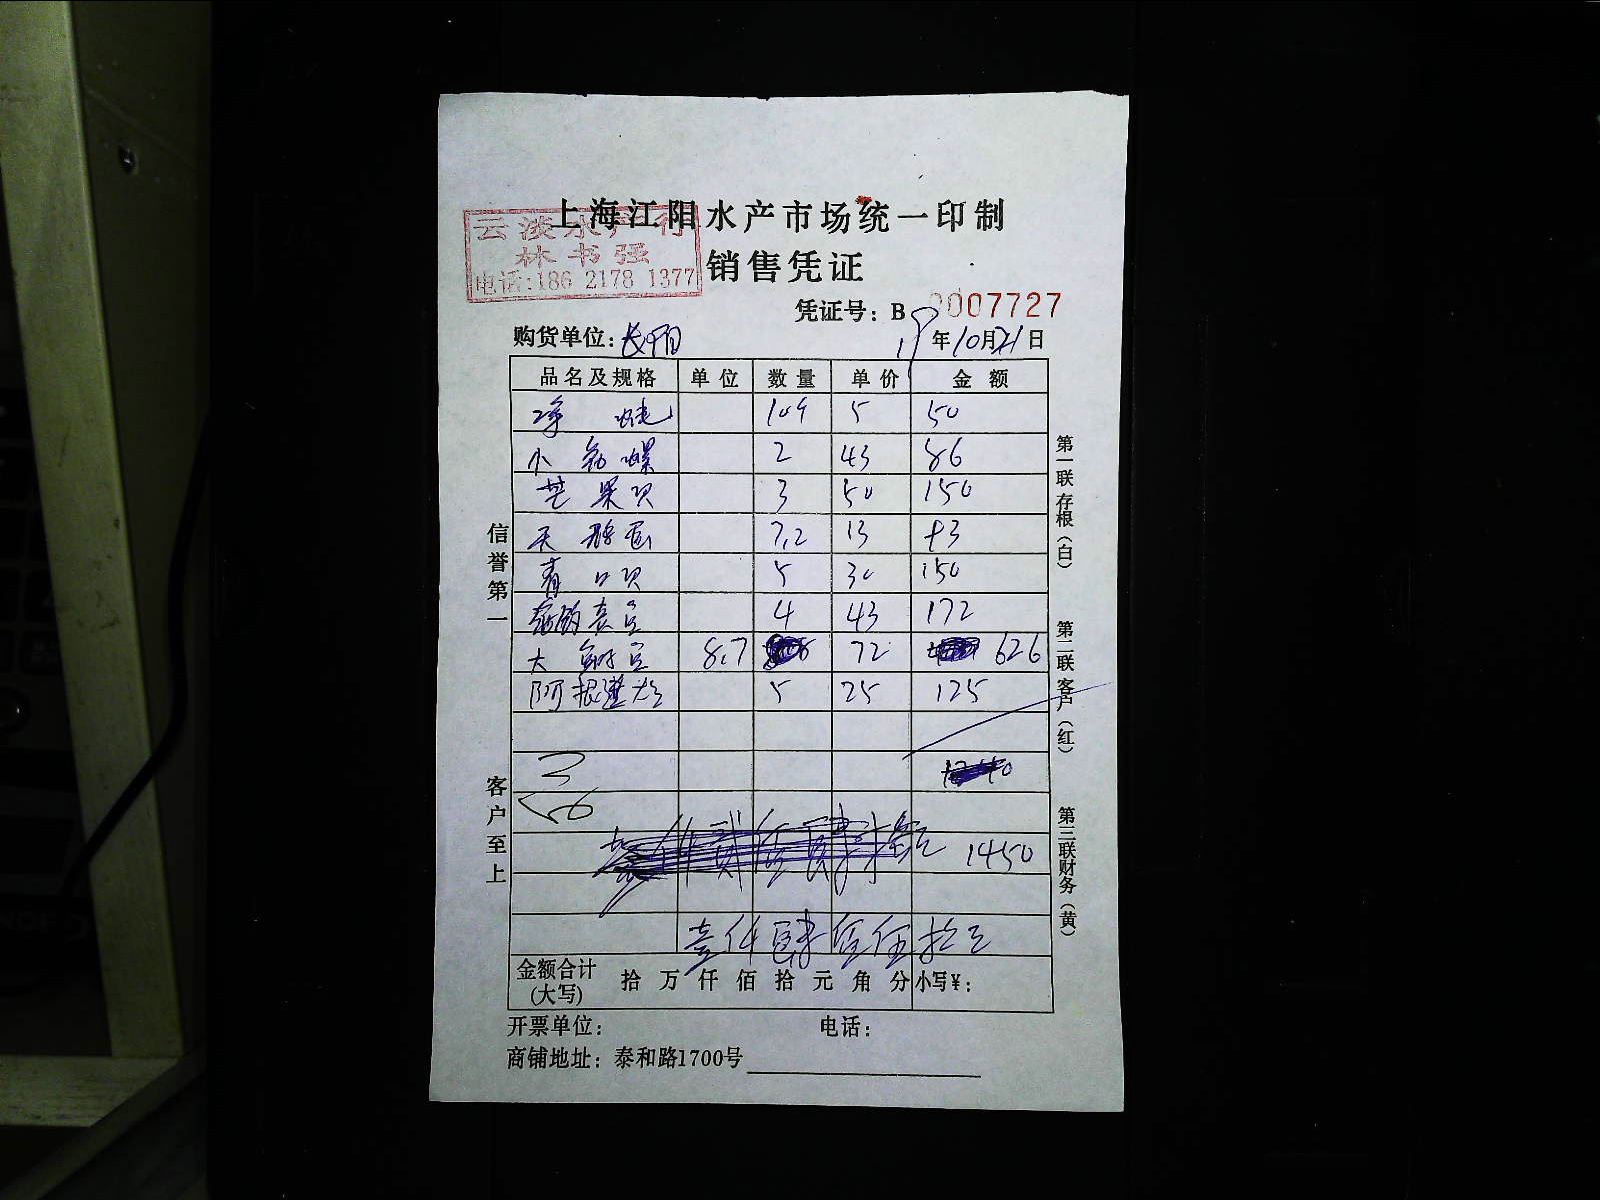 上海江阳水产市场统一印制
云淡水产行
林书强
电话:186 2178 1377
销售凭证
凭证号: B 0007727
购货单位: 长阳
19年10月21日
品名及规格 单位 数量 单价 金额
净 5 50
小 螺 2 43 86
芒果贝 3 50 150
天鹅蛋 7.2 13 93
青口贝 5 30 150
4 43 172
大 8.7 72 626
阿根廷 5 25 125
1450
壹仟肆佰伍拾元
金额合计
(大写) 拾 万 仟 佰 拾 元 角 分 小写¥:
开票单位: 电话:
商铺地址: 泰和路1700号
信誉第一
客户至上
第一联存根(白)
第二联客户(红)
第三联财务(黄)